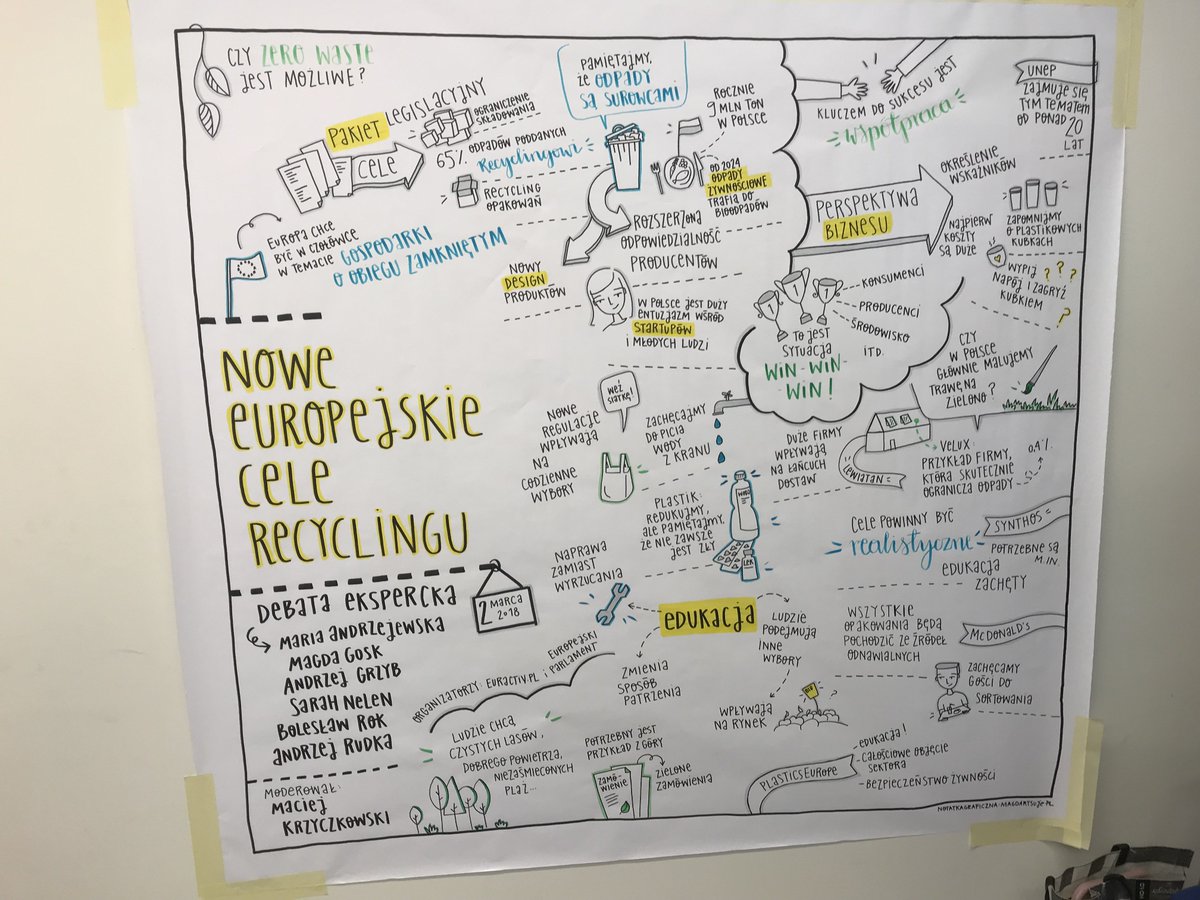 CZY ZERO WASTE
JEST MOŻLIWE?
PAKIET LEGISLACYJNY
CELE
OGRANICZENIE
SKŁADOWANIA
65% ODPADÓW PODDANYCH
Recyclingowi
RECYCLING
OPAKOWAŃ
EUROPA CHCE
BYĆ W CZOŁÓWCE
W TEMACIE GOSPODARKI
O OBIEGU ZAMKNIĘTYM
PAMIĘTAJMY,
ŻE ODPADY
SĄ SUROWCAMI
ROCZNIE
9 MLN TON
W POLSCE
OD 2024
ODPADY
ŻYWNOŚCIOWE
TRAFIĄ DO
BIOODPADÓW
ROZSZERZONA
ODPOWIEDZIALNOŚĆ
PRODUCENTÓW
NOWY
DESIGN
PRODUKTÓW
W POLSCE JEST DUŻY
ENTUZJAZM WŚRÓD
STARTUPÓW
I MŁODYCH LUDZI
KLUCZEM DO SUKCESU JEST
współpraca
UNEP
ZAJMUJE SIĘ
TYM TEMATEM
OD PONAD
20
LAT
PERSPEKTYWA
BIZNESU
OKREŚLENIE
WSKAŹNIKÓW
NAJPIERW
KOSZTY
SĄ DUŻE
ZAPOMNIJMY
O PLASTIKOWYCH
KUBKACH
WYPIJ
NAPÓJ I ZAGRYŹ
KUBKIEM
? ? ?
?
1
1
1
KONSUMENCI
PRODUCENCI
ŚRODOWISKO
ITD.
TO JEST
SYTUACJA
WIN-WIN-
WIN!
CZY
W POLSCE
GŁÓWNIE MALUJEMY
TRAWĘ NA
ZIELONO?
NOWE
EUROPEJSKIE
CELE
RECYCLINGU
WEŹ
SIATKĘ!
NOWE
REGULACJE
WPŁYWAJĄ
NA
CODZIENNE
WYBORY
ZACHĘCAJMY
DO PICIA
WODY
Z KRANU
DUŻE FIRMY
WPŁYWAJĄ
NA ŁAŃCUCH
DOSTAW
LEWIATAN
VELUX:
PRZYKŁAD FIRMY,
KTÓRA SKUTECZNIE
OGRANICZA ODPADY
0,4%
PLASTIK:
REDUKUJMY,
ALE PAMIĘTAJMY,
ŻE NIE ZAWSZE
JEST ZŁY
LEK
CELE POWINNY BYĆ
realistyczne
SYNTHOS
POTRZEBNE SĄ
M.IN.
EDUKACJA
ZACHĘTY
NAPRAWA
ZAMIAST
WYRZUCANIA
EDUKACJA
ZMIENIA
SPOSÓB
PATRZENIA
LUDZIE
PODEJMUJĄ
INNE
WYBORY
WPŁYWAJĄ
NA RYNEK
WSZYSTKIE
OPAKOWANIA BĘDĄ
POCHODZIĆ ZE ŹRÓDEŁ
ODNAWIALNYCH
McDONALD'S
ZACHĘCAMY
GOŚCI DO
SORTOWANIA
DEBATA EKSPERCKA
2 MARCA
2018
MARIA ANDRZEJEWSKA
MAGDA GOSK
ANDRZEJ GRZYB
SARAH NELEN
BOLESŁAW ROK
ANDRZEJ RUDKA
MODEROWAŁ:
MACIEJ
KRZYCZKOWSKI
ORGANIZATORZY: EURACTIV.PL I EUROPEJSKI
PARLAMENT
LUDZIE CHCĄ
CZYSTYCH LASÓW,
DOBREGO POWIETRZA,
NIEZAŚMIECONYCH
PLAŻ...
POTRZEBNY JEST
PRZYKŁAD Z GÓRY
ZAMÓ-
WIENIE
ZIELONE
ZAMÓWIENIA
PLASTICSEUROPE
- EDUKACJA!
- CAŁOŚCIOWE OBJĘCIE
SEKTORA
- BEZPIECZEŃSTWO ŻYWNOŚCI
NOTATKAGRAFICZNA-MAGDARTSUJE.PL